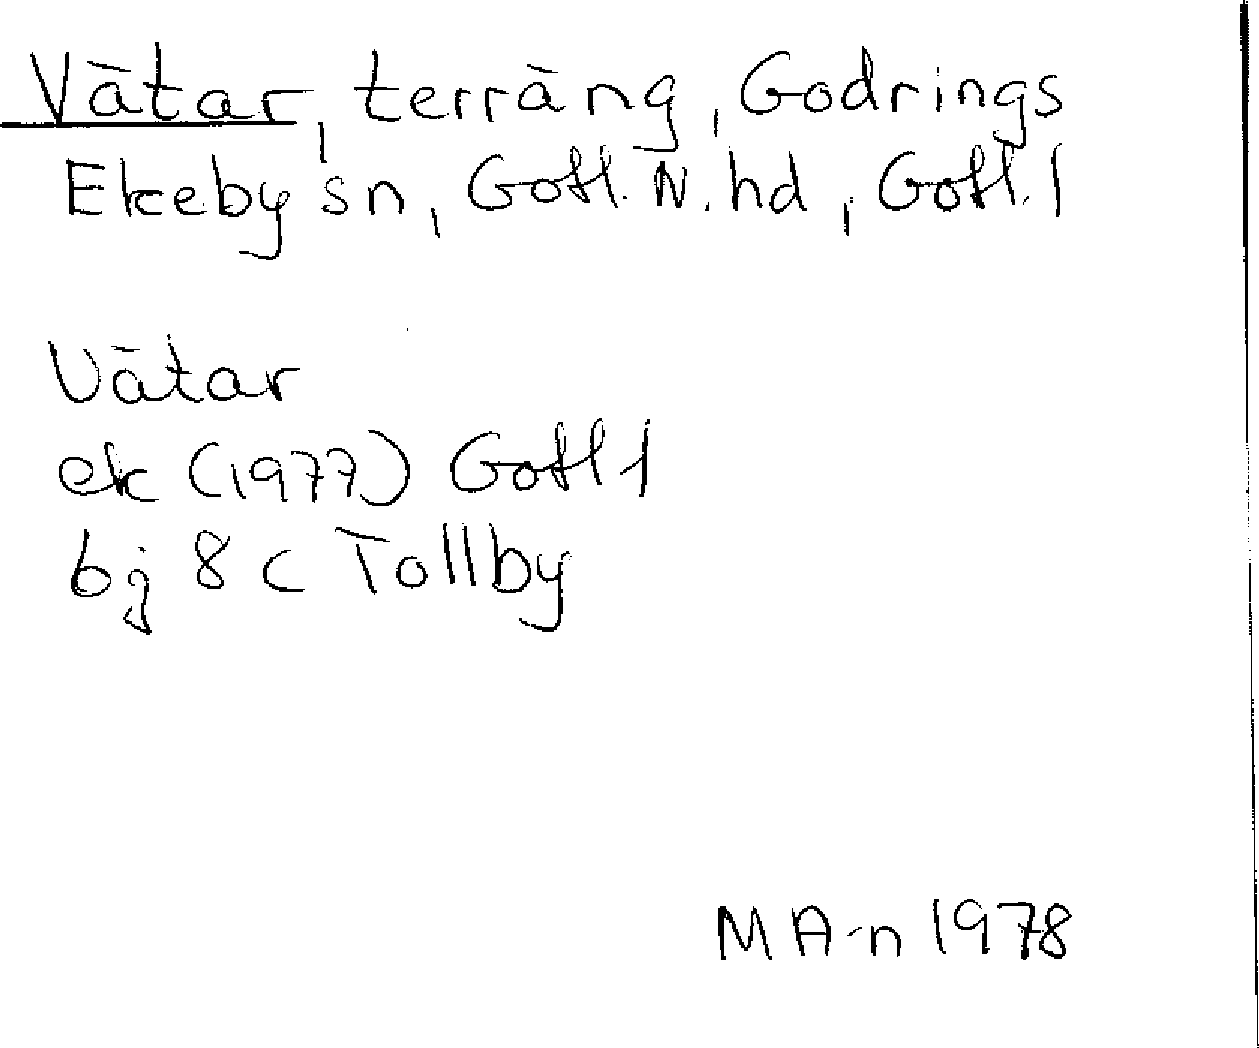 Vätar, terräng, Godrings
Ekeby sn, Gotl. N. hd, Gotl. l
Vätar
ek (1977) Gotl l
bj 8 c Tollby
M A-n 1978